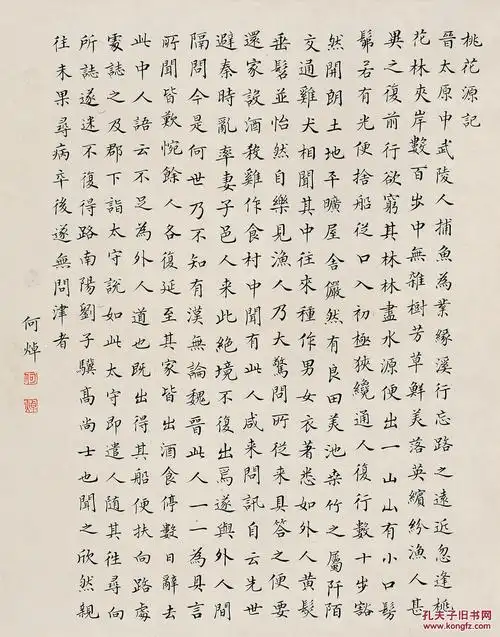 桃花源記
晉太原中武陵人捕魚為業緣溪行忘路之遠近忽逢桃
花林夾岸數百步中無雜樹芳草鮮美落英繽紛漁人甚
異之復前行欲窮其林林盡水源便出一山山有小口髣
髴若有光便捨船從口入初極狹纔通人復行數十步豁
然開朗土地平曠屋舍儼然有良田美池桑竹之屬阡陌
交通雞犬相聞其中往來種作男女衣著悉如外人黃髮
垂髫並怡然自樂見漁人乃大驚問所從來具答之便要
還家設酒殺雞作食村中聞有此人咸來問訊自云先世
避秦時亂率妻子邑人來此絕境不復出焉遂與外人間
隔問今是何世乃不知有漢無論魏晉此人一一為具言
所聞皆歎惋餘人各復延至其家皆出酒食停數日辭去
此中人語云不足為外人道也既出得其船便扶向路處
處誌之及郡下詣太守說如此太守即遣人隨其往尋向
所誌遂迷不復得路南陽劉子驥高尚士也聞之欣然親
往未果尋病卒後遂無問津者
何焯
孔夫子旧书网
www.kongfz.com